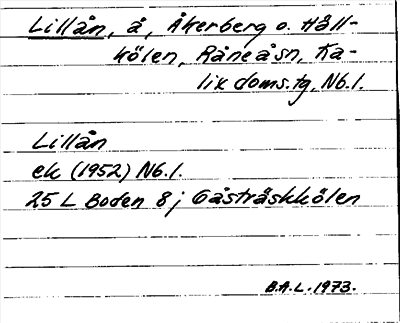 Lillån, å, Åkerberg o. Håll-
kölen, Råneå sn, Ka-
lix doms.tg, Nb.l.
Lillån
ek (1952) Nb.l.
25 L Boden 8 j Gåsträskkölen
B.A.L. 1973.